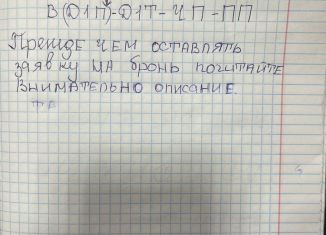 В(Д1П)-Д1Т-ЧП-ПП
Прежде чем оставлять
заявку на бронь почитайте
внимательно описание.